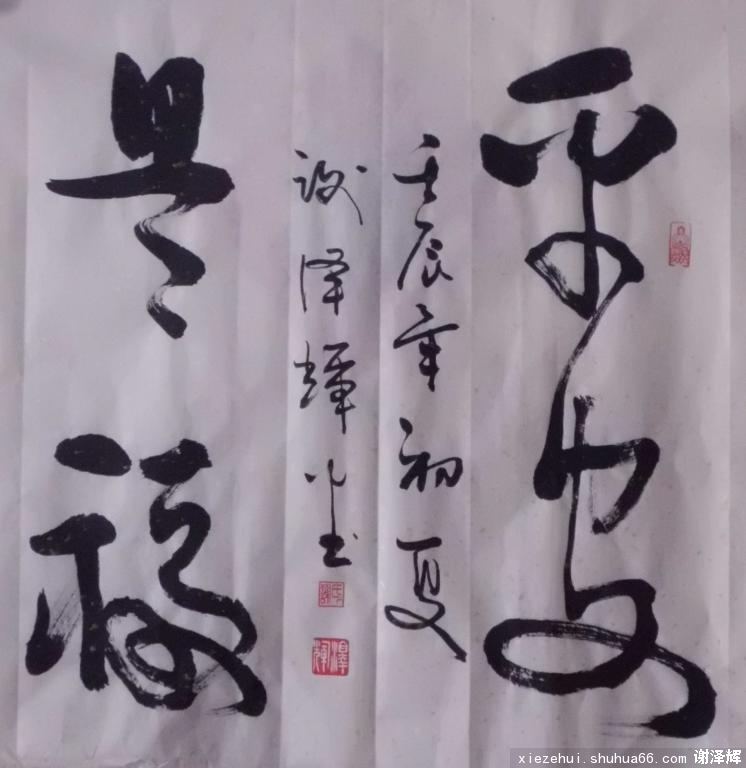 平安
是福
壬辰年初夏
谢泽辉小书
泽辉
xiezehui.shuhua66.com 谢泽辉